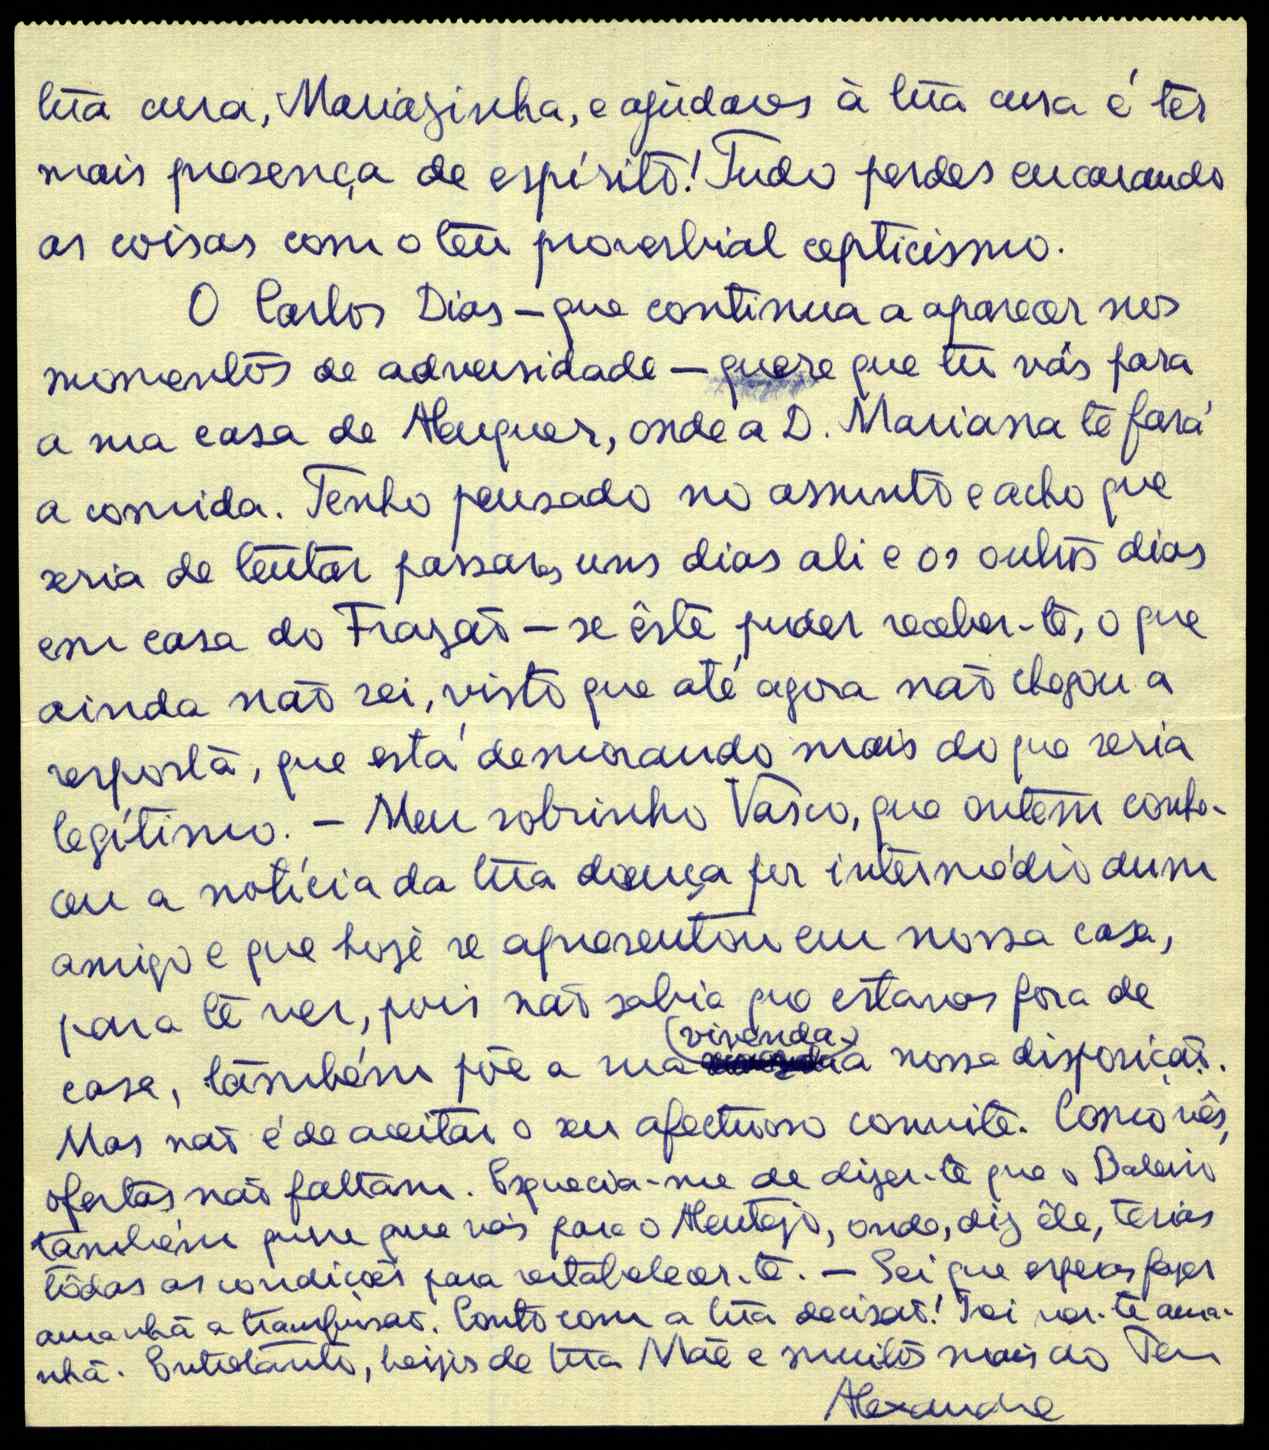 tua cura, Mariazinha, e ajudares à tua cura é ter
mais presença de espírito! Tudo perdes encarando
as coisas com o teu proverbial cepticismo.
O Carlos Dias – que continua a aparecer nos
momentos de adversidade – quere que tu vás para
a sua casa de Alenquer, onde a D. Mariana te fará
a comida. Tenho pensado no assunto e acho que
seria de tentar passares uns dias ali e os outros dias
em casa do Frazão – se êste puder receber-te, o que
ainda não sei, visto que até agora não chegou a
resposta, que está demorando mais do que seria
legítimo. – Meu sobrinho Vasco, que ontem conhe-
ceu a notícia da tua doença por intermédio dum
amigo e que hoje se apresentou em nossa casa,
para te ver, pois não sabia que estavas fora de
casa, também põe a sua (vivenda) à nossa disposição.
Mas não é de aceitar o seu afectuoso convite. Como vês,
ofertas não faltam. Esquecia-me de dizer-te que o
também quere que vás para o Alentejo, onde, diz êle, terias
tôdas as condições para restabelecer-te. – Sei que esperas fazer
amanhã a transfusão. Conto com a tua decisão! Irei ver-te ama-
nhã. Entretanto, beijos de tua Mãe e muitos mais do Teu
Alexandre